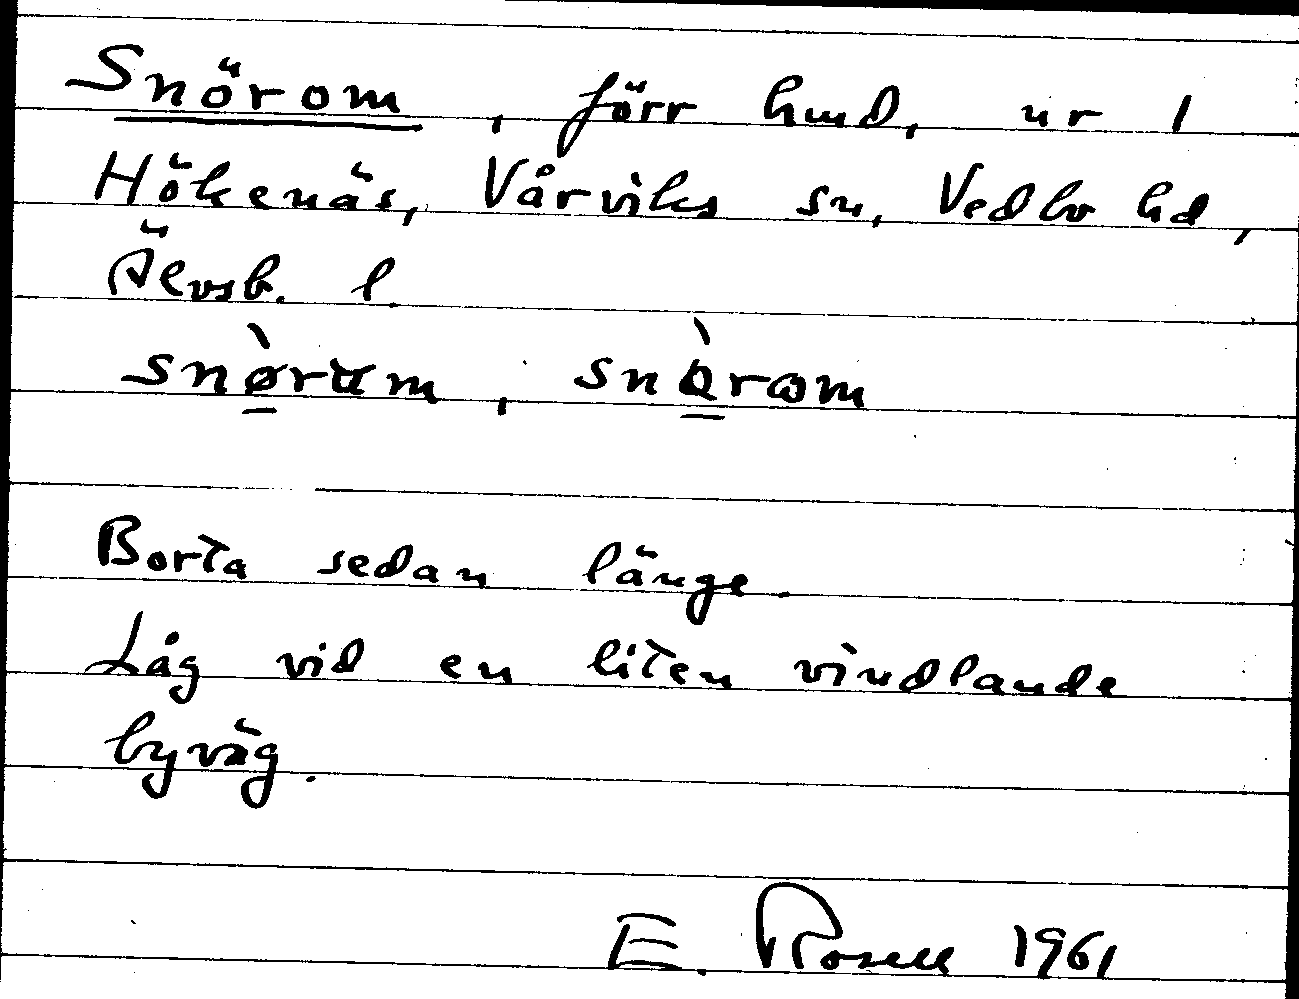 Snörom, förr hmd, nr 1
Hökenäs, Vårviks sn, Vedbo hd,
Älvsb. l.
snø̀rum, snò̀rom
Borta sedan länge.
Låg vid en liten vindlande
byväg.
E. Rosell 1961